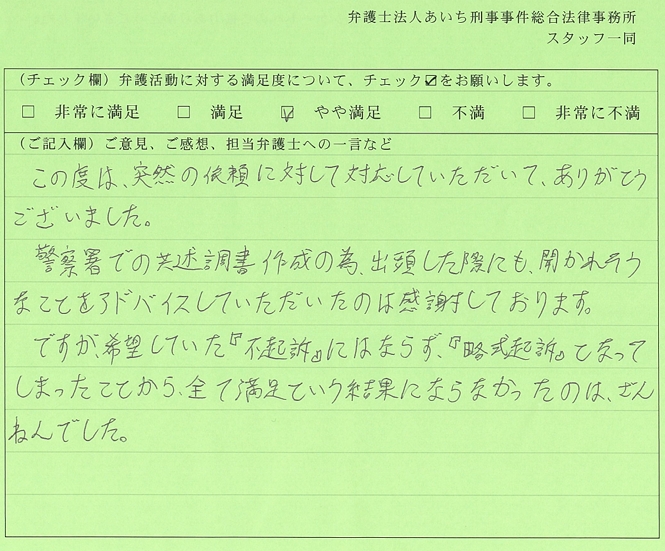 弁護士法人あいち刑事事件総合法律事務所
スタッフ一同
（チェック欄）弁護活動に対する満足度について、チェック☑をお願いします。
□ 非常に満足 □ 満足 ☑ やや満足 □ 不満 □ 非常に不満
（ご記入欄）ご意見、ご感想、担当弁護士への一言など
この度は、突然の依頼に対して対応していただいて、ありがとう
ございました。
警察署での共述調書作成の為、出頭した際にも、聞かれそう
なことをアドバイスしていただいたのは感謝しております。
ですが、希望していた『不起訴』にはならず、『略式起訴』となって
しまったことから、全て満足という結果にならなかったのは、ざん
ねんでした。